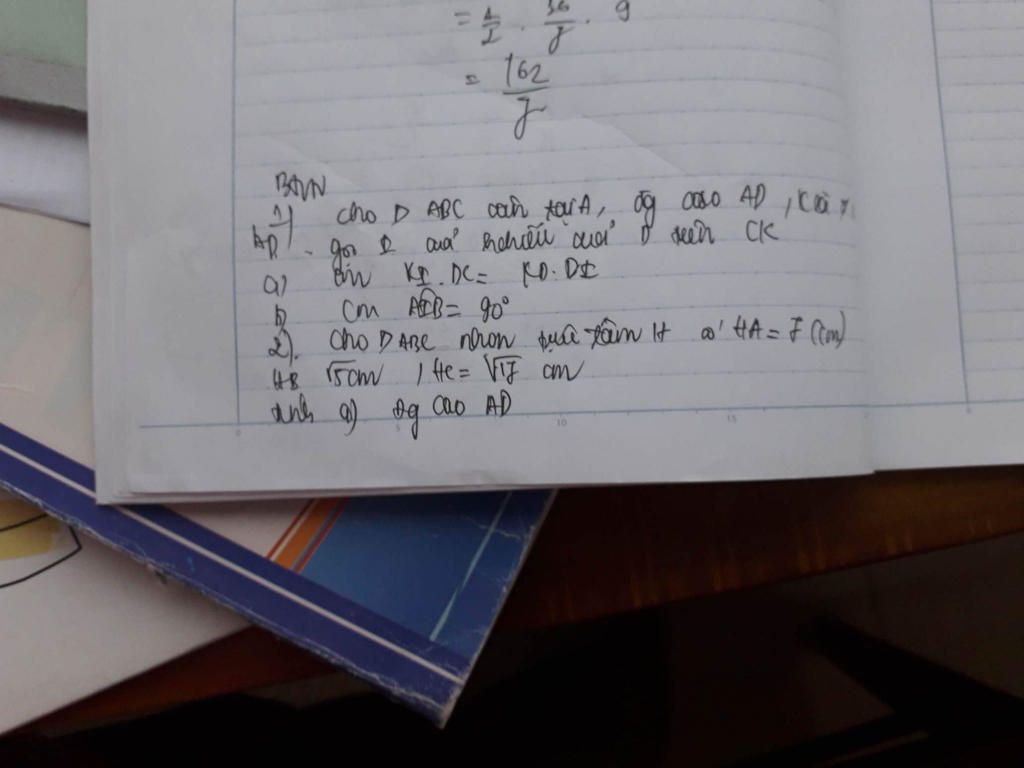 = 1/2 . 36/5 . 9
= 162/5
BTVN
1) Cho Δ ABC cân tại A, đg cao AD,
AD. gọi I hình chiếu D trên CK
a) Cm KI.DC = KD.DI
b) Cm AIB = 90°
2). Cho Δ ABC nhọn trực tâm H có HA = 7 (cm)
HB √5cm , HC = √17 cm
tính a) đg cao AD
0 5 10 15 0